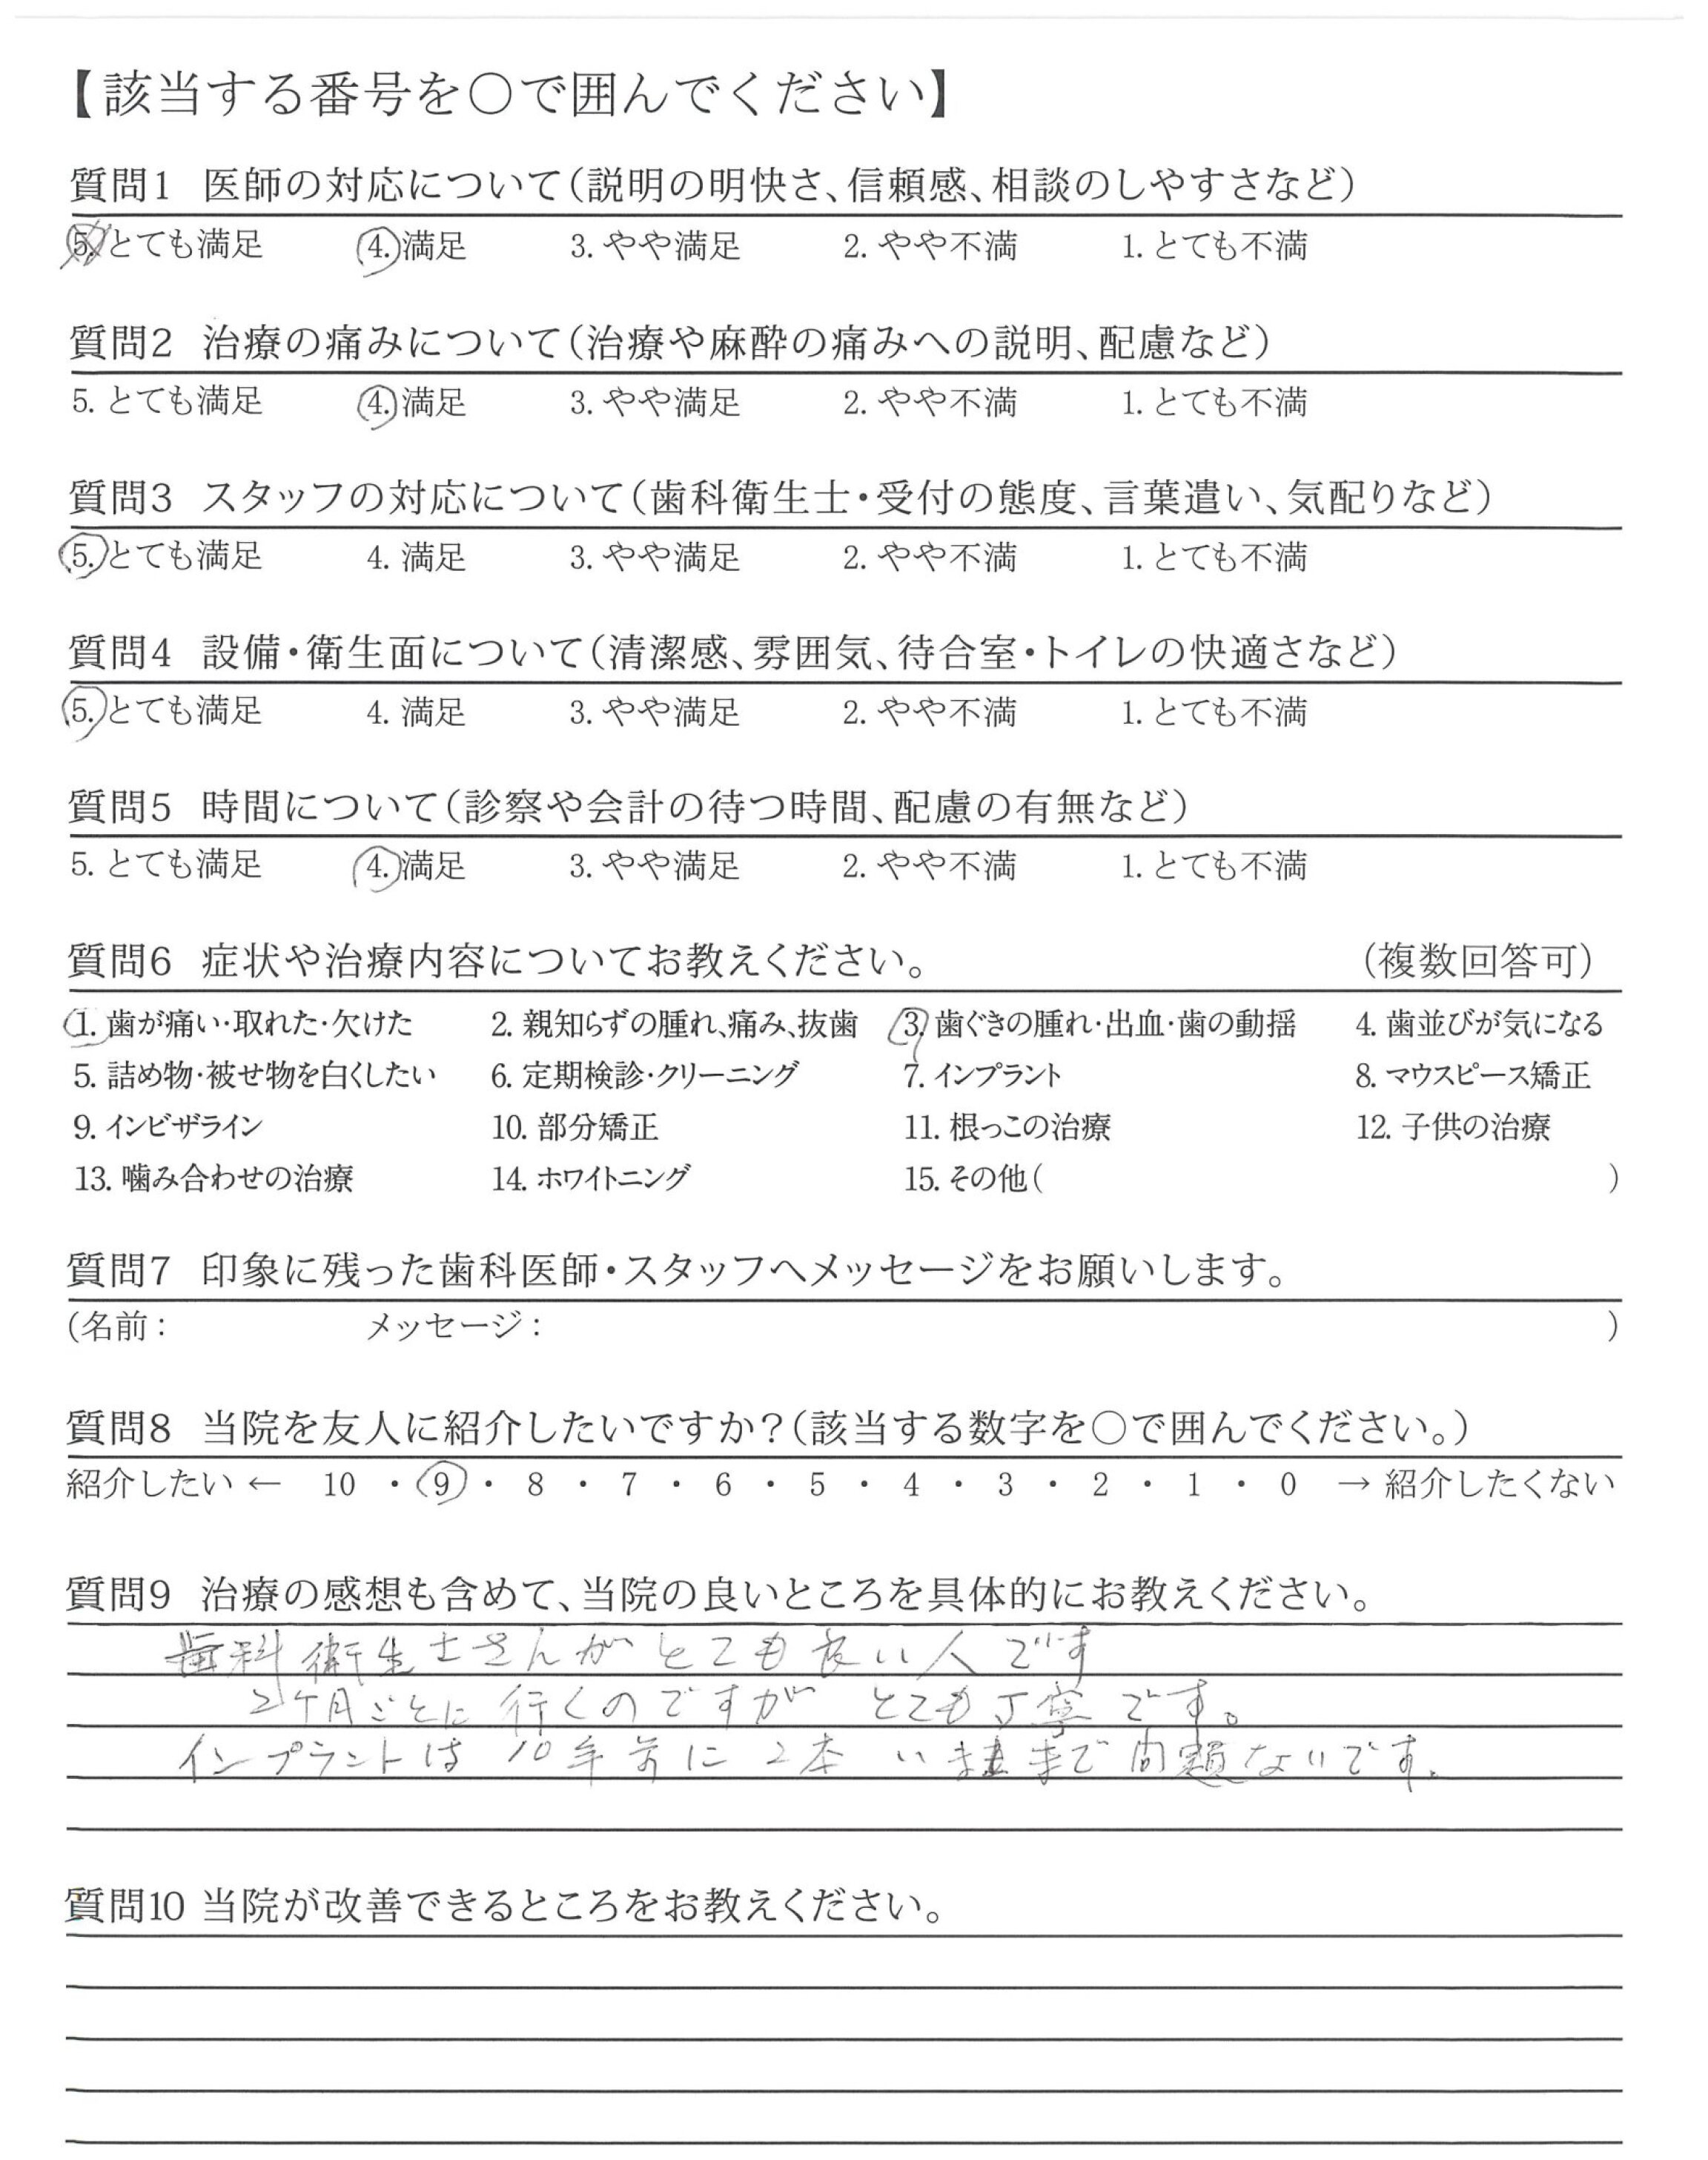 【該当する番号を○で囲んでください】
質問1 医師の対応について(説明の明快さ、信頼感、相談のしやすさなど)
5. とても満足 4. 満足 3. やや満足 2. やや不満 1. とても不満
質問2 治療の痛みについて(治療や麻酔の痛みへの説明、配慮など)
5. とても満足 4. 満足 3. やや満足 2. やや不満 1. とても不満
質問3 スタッフの対応について(歯科衛生士・受付の態度、言葉遣い、気配りなど)
5. とても満足 4. 満足 3. やや満足 2. やや不満 1. とても不満
質問4 設備・衛生面について(清潔感、雰囲気、待合室・トイレの快適さなど)
5. とても満足 4. 満足 3. やや満足 2. やや不満 1. とても不満
質問5 時間について(診察や会計の待つ時間、配慮の有無など)
5. とても満足 4. 満足 3. やや満足 2. やや不満 1. とても不満
質問6 症状や治療内容についてお教えください。 (複数回答可)
1. 歯が痛い・取れた・欠けた 2. 親知らずの腫れ、痛み、抜歯 3. 歯ぐきの腫れ・出血・歯の動揺 4. 歯並びが気になる
5. 詰め物・被せ物を白くしたい 6. 定期検診・クリーニング 7. インプラント 8. マウスピース矯正
9. インビザライン 10. 部分矯正 11. 根っこの治療 12. 子供の治療
13. 噛み合わせの治療 14. ホワイトニング 15. その他( )
質問7 印象に残った歯科医師・スタッフへメッセージをお願いします。
(名前： メッセージ： )
質問8 当院を友人に紹介したいですか？(該当する数字を○で囲んでください。)
紹介したい ← 10 ・ 9 ・ 8 ・ 7 ・ 6 ・ 5 ・ 4 ・ 3 ・ 2 ・ 1 ・ 0 → 紹介したくない
質問9 治療の感想も含めて、当院の良いところを具体的にお教えください。
歯科衛生士さんがとても良い人です
2ケ月ごとに行くのですがとても丁寧です。
インプラントは10年前に2本いままで問題ないです。
質問10 当院が改善できるところをお教えください。